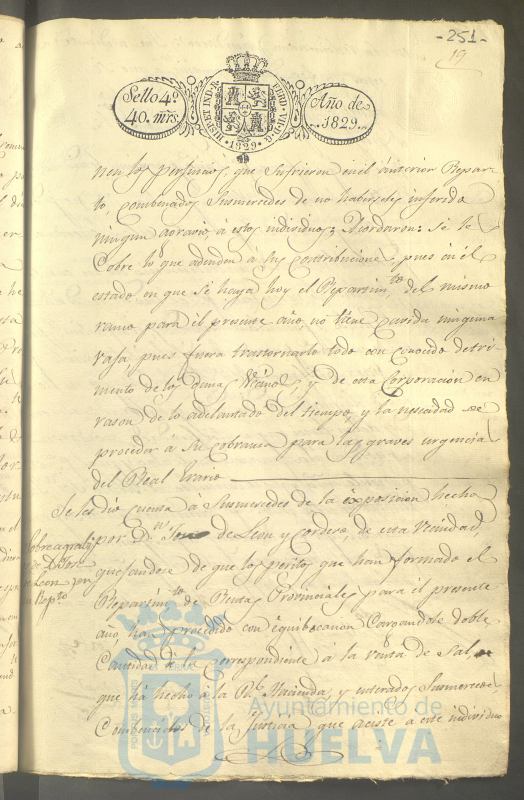 -251-
19
Sello 4º
40. mrs.
HISP. ET IND. R.
FERD. VII. D. G.
·1829·
Año de
1829.
nen los perjuicios que sufrieron en el anterior Repar-
to, combenados Susmercedes de no haberseles inferido
ningun agravio á estos individuos; Acordaron: Se le
Cobre lo que adeuden á sus contribuciones, pues en el
estado en que se haya hoy el Repartimto. del mismo
ramo para el presente año, no tiene cavida ninguna
vaja pues fuera trastornarlo todo con conocido detri-
mento de los demas Vecinos y de esta Corporacion en
rason de lo adelantado del tiempo, y la nescidad de
proceder á su cobranza para las graves urgencias
del Real Erario
Se les dio cuenta á Susmercedes de la exposicion hecha
por Dn. Jose de Leon y Cordero, de esta Vecindad
quejandose de que los peritos que han formado el
Repartimto. de Rentas Provinciales para el presente
año, han procedido con equibocacion Cargandole doble
Cantidad de la correspondiente á la venta de Sal,
que há hecho á la Rl. Hacienda, y enterados Susmercedes
Combencidos de la Justicia que aciste á este individuo
Sobre agrabio
de D. Jose
de Leon en
el Repto.
Ayuntamiento de
HUELVA